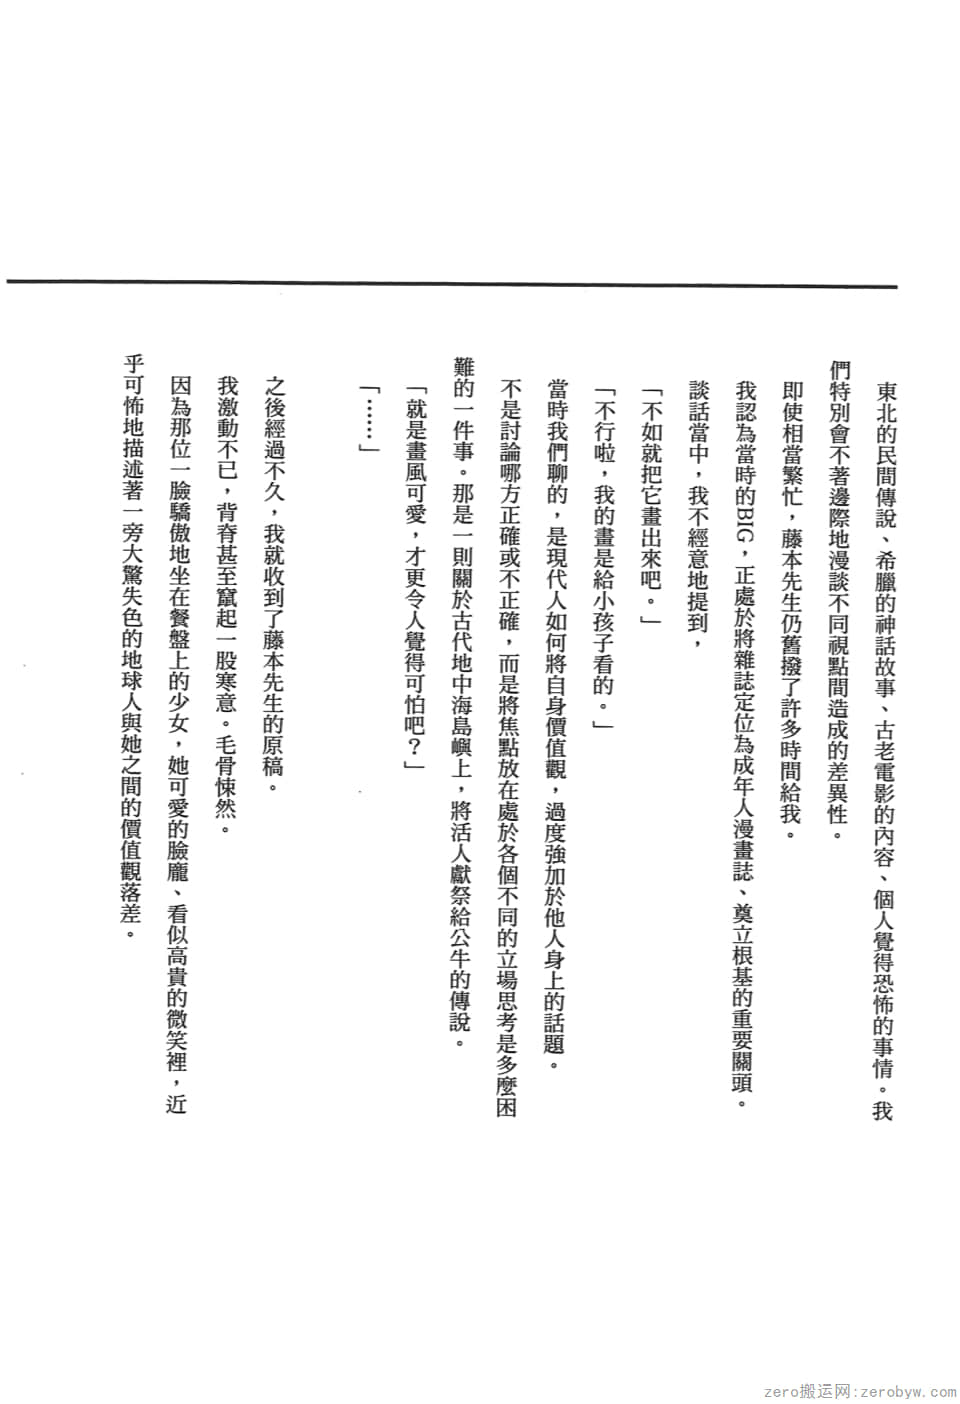 東北的民間傳說、希臘的神話故事、古老電影的內容、個人覺得恐怖的事情。我
們特別會不著邊際地漫談不同視點間造成的差異性。
即使相當繁忙，藤本先生仍舊撥了許多時間給我。
我認為當時的BIG，正處於將雜誌定位為成年人漫畫誌、奠立根基的重要關頭。
談話當中，我不經意地提到，
「不如就把它畫出來吧。」
「不行啦，我的畫是給小孩子看的。」
當時我們聊的，是現代人如何將自身價值觀，過度強加於他人身上的話題。
不是討論哪方正確或不正確，而是將焦點放在處於各個不同的立場思考是多麼困
難的一件事。那是一則關於古代地中海島嶼上，將活人獻祭給公牛的傳說。
「就是畫風可愛，才更令人覺得可怕吧？」
「……」
之後經過不久，我就收到了藤本先生的原稿。
我激動不已，背脊甚至竄起一股寒意。毛骨悚然。
因為那位一臉驕傲地坐在餐盤上的少女，她可愛的臉龐、看似高貴的微笑裡，近
乎可怖地描述著一旁大驚失色的地球人與她之間的價值觀落差。
zero搬运网:zerobyw.com